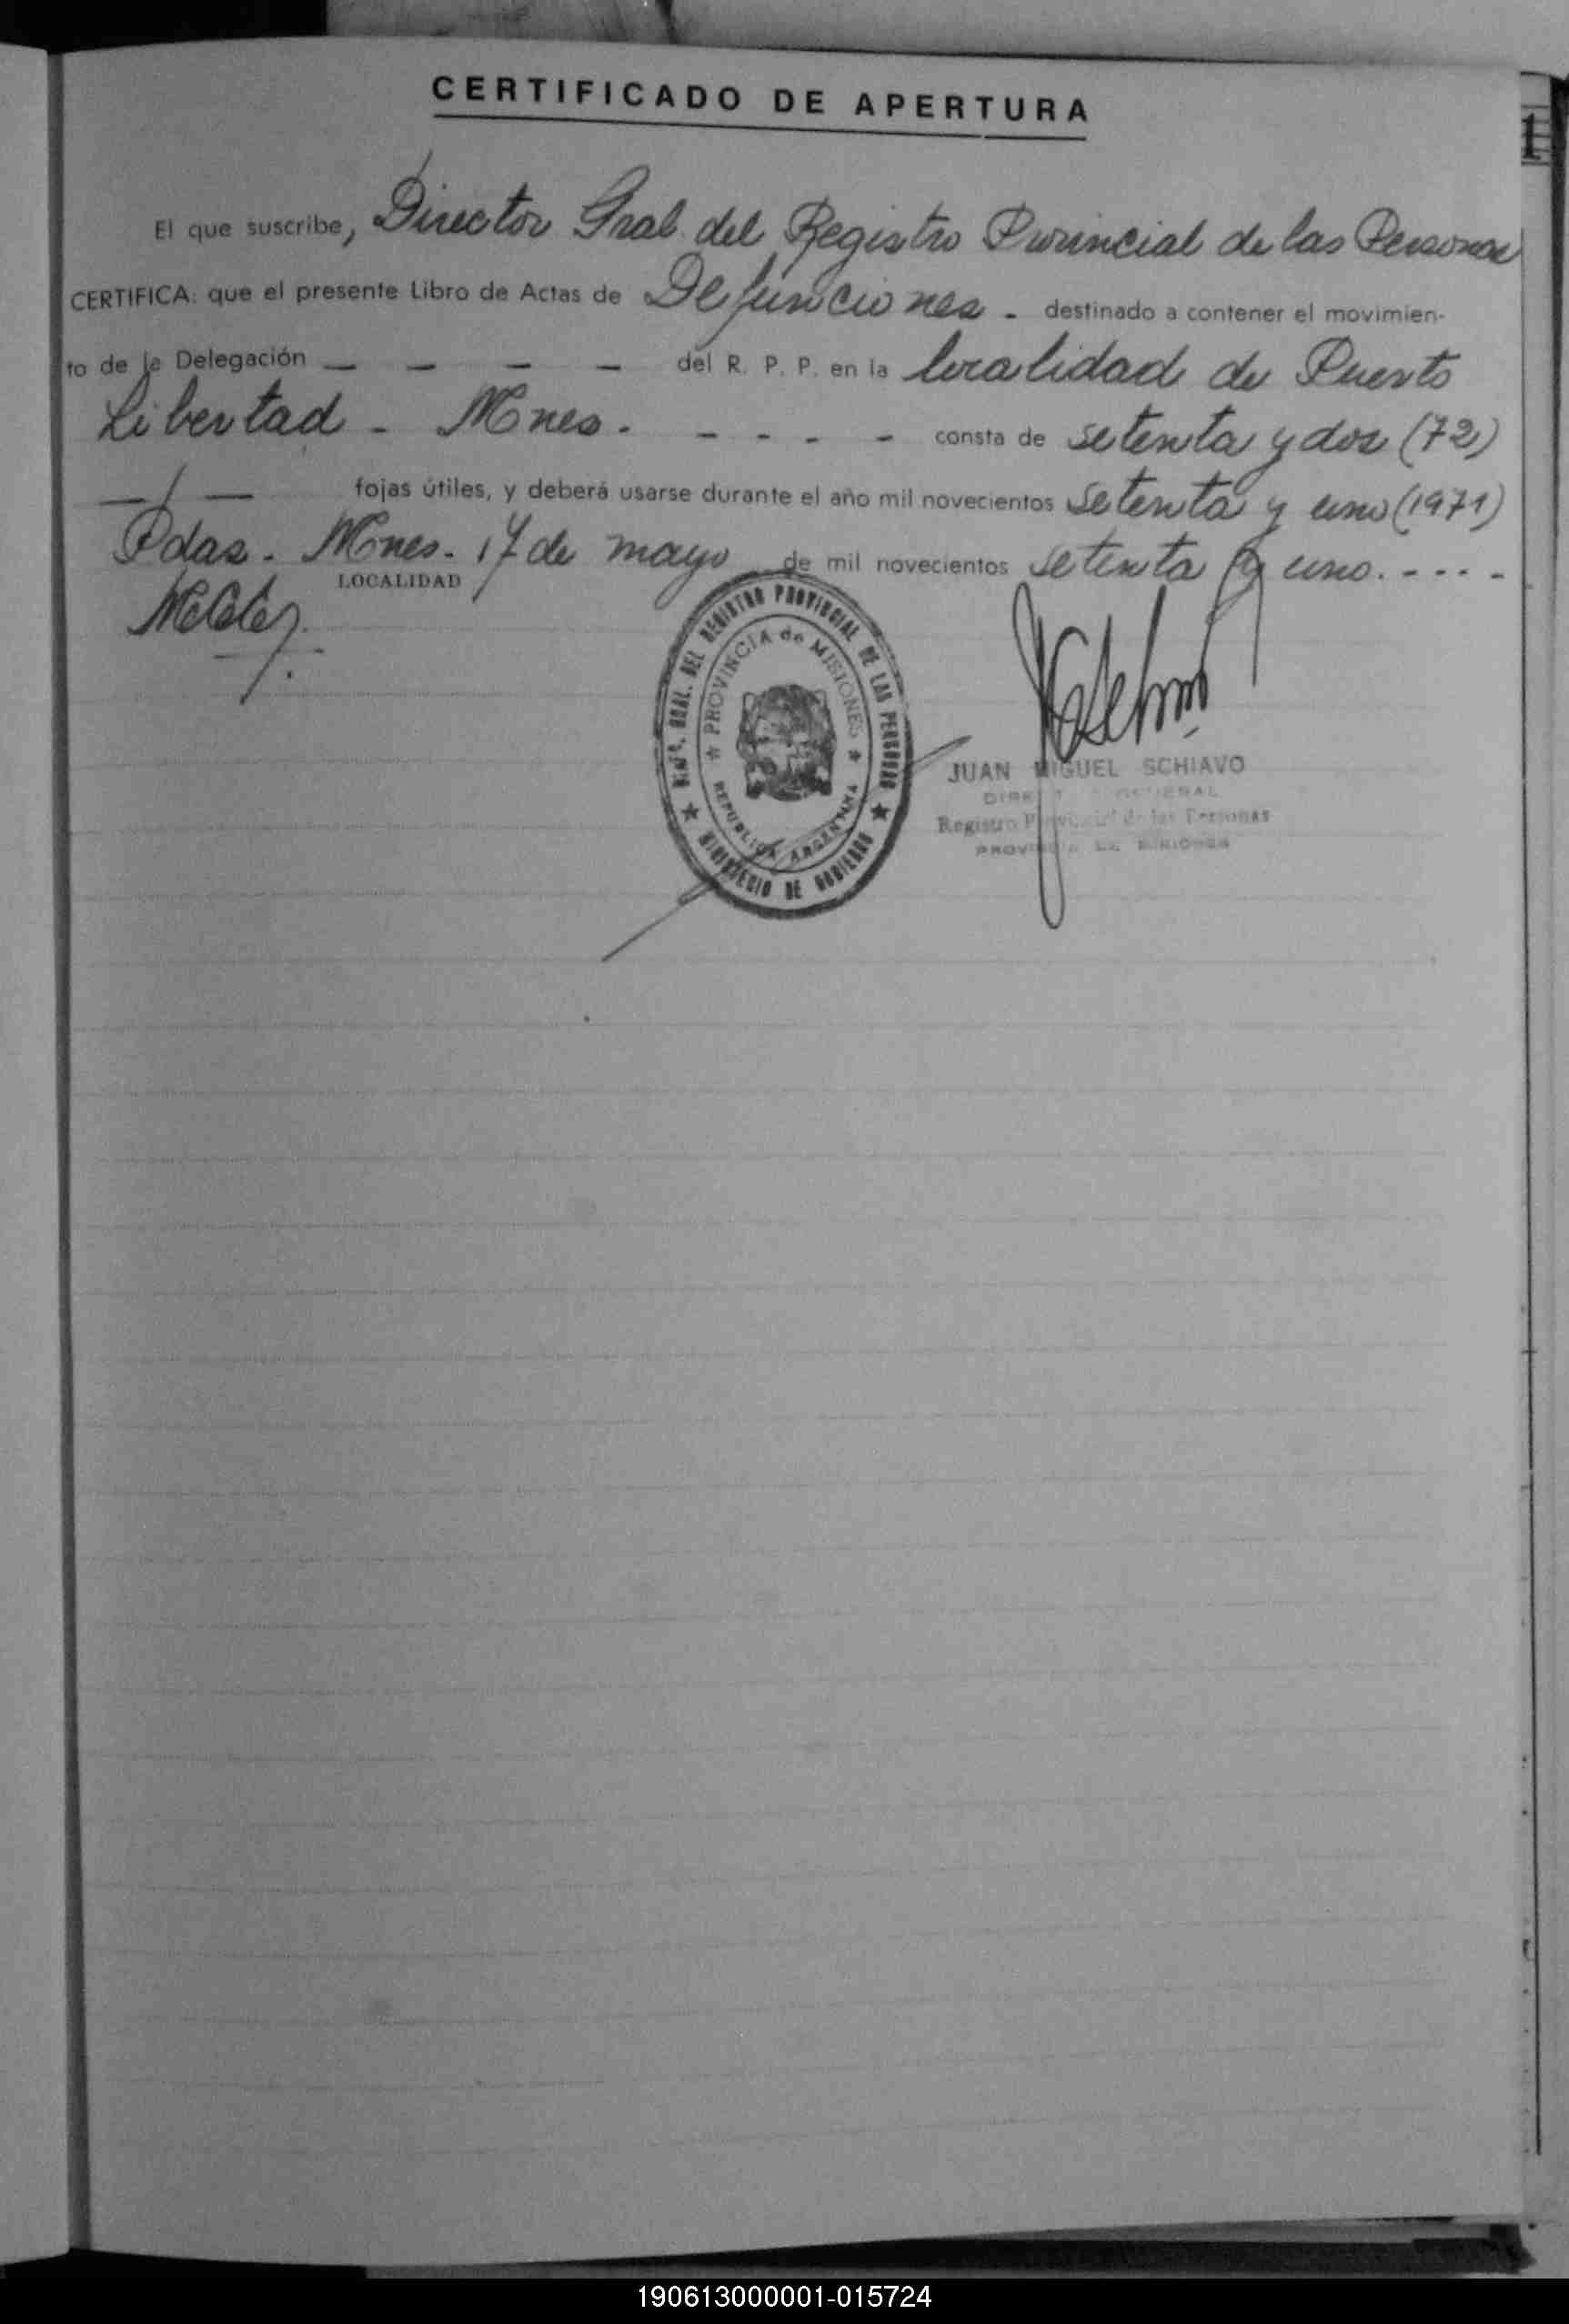 CERTIFICADO DE APERTURA
1
El que suscribe, Director Gral. del Registro Provincial de las Personas
CERTIFICA: que el presente Libro de Actas de Defunciones - destinado a contener el movimien-
to de la Delegación — — — — del R. P. P. en la localidad de Puerto
Libertad - Mnes. - - - - consta de setenta y dos (72)
—/— fojas útiles, y deberá usarse durante el año mil novecientos setenta y uno (1971)
Pdas. Mnes. 17 de mayo de mil novecientos setenta y uno. - - - -
LOCALIDAD
DIREC. GRAL. DEL REGISTRO PROVINCIAL DE LAS PERSONAS
★ MINISTERIO DE GOBIERNO ★
★ PROVINCIA de MISIONES ★
REPUBLICA ARGENTINA
JUAN MIGUEL SCHIAVO
DIRECTOR GENERAL
Registro Provincial de las Personas
PROVINCIA DE MISIONES
190613000001-015724